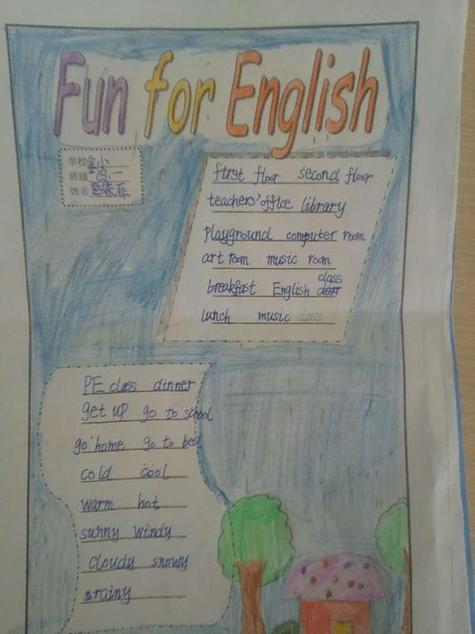 Fun for English
学校 金小
班级 四一
姓名
first floor second floor
teachers' office library
playground computer room
art room music room
class
breakfast English
lunch music class
PE class dinner
get up go to school
go home go to bed
cold cool
warm hot
sunny windy
cloudy snowy
rainy